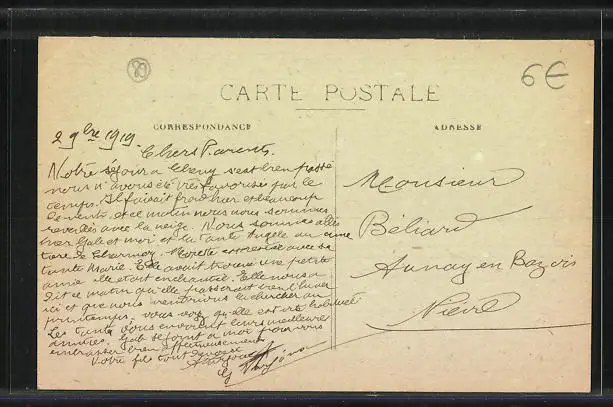 89
6€
CARTE POSTALE
CORRESPONDANCE
ADRESSE
2 9bre 1919.
Chers Parents,
Notre séjour a Cheny s'est bien passé
nous n'avons été très favorisés par le
temps. Il faisait froid hier et beaucoup
de vent, et ce matin nous nous sommes
reveillés avec la neige. Nous sommes allés
hier Gab et moi et la tante Angèle au cime
tiere de Charmoy. est restée avec sa
tante Marie. Elle avait trouvé une petite
amie elle était enchantée. Elle nous a
dit ce matin qu'elle passerait bien l'hiver
ici et que nous viendrions la chercher au
printemps. vous voyez qu'elle est vite habituée
Les tantes vous envoient leurs meilleures
amitiés. Gab se joint a moi pour vous
embrasser bien affectueusement
Votre fils tout dévoué
Monsieur
Béliard
Aunay en Bazois
Nièvre